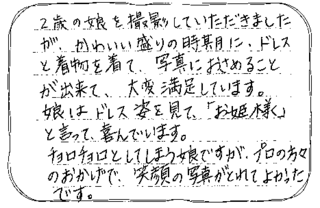 2歳の娘を撮影していただきました
が、かわいい盛りの時期に、ドレス
と着物を着て、写真におさめること
が出来て、大変満足しています。
娘はドレス姿を見て、「お姫様く」
と言って、喜んでいます。
チョロチョロとしてしまう娘ですが、プロの方々
のおかげで、笑顔の写真がとれてよかった
です。